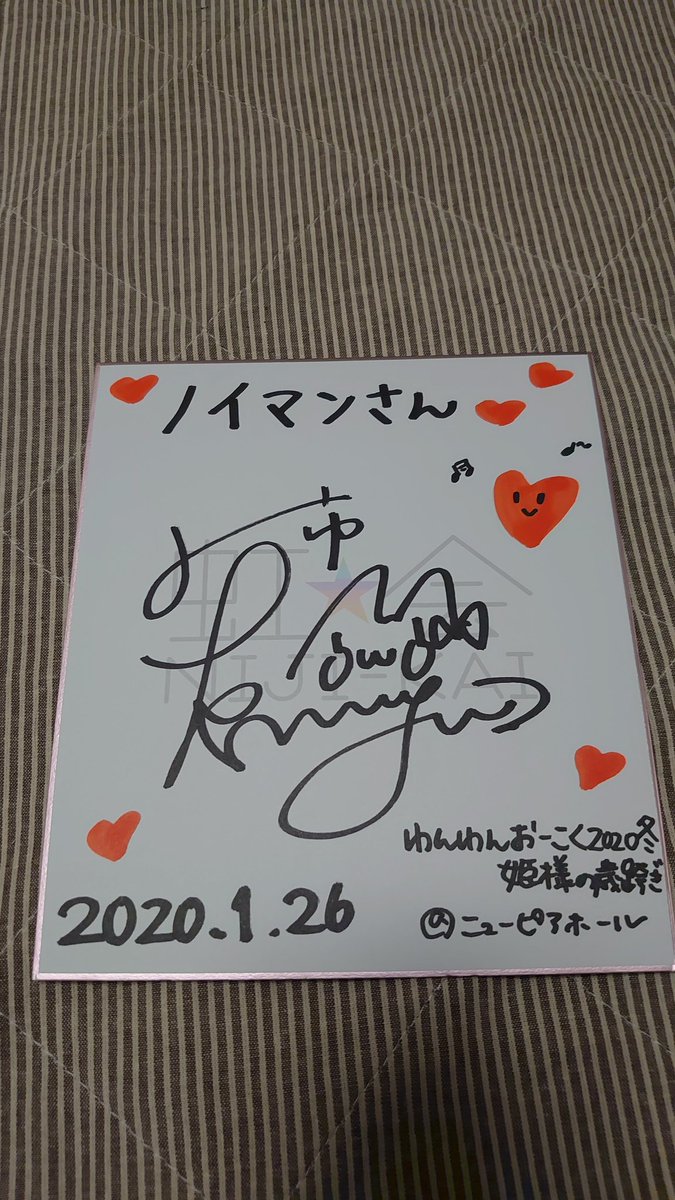 ノイマンさん
虹★会
NIJI-KAI
わんわんおーこく2020冬
姫様の歳跨ぎ
ニューピアホール
2020.1.26